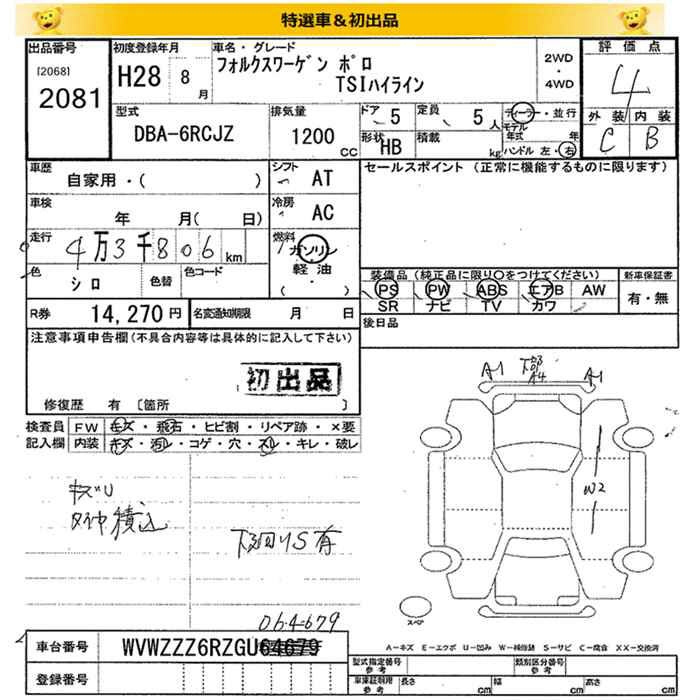 特選車&初出品
出品番号
[2068]
2081
初度登録年月
H28 8月
車名・グレード
フォルクスワーゲン ポロ
TSIハイライン
2WD・4WD
評価点
4
外装 内装
C B
型式
DBA-6RCJZ
排気量
1200 CC
ドア 5
定員 5人
ディーラー・並行
モデル年式 年
形状 HB
積載 kg
ハンドル 左・右
車歴
自家用・( )
シフト AT
セールスポイント (正常に機能するものに限ります)
車検
年 月( 日)
冷房 AC
走行
4万3千806km
燃料
ガソリン
軽油
( ・ )
色
シロ
色替
色コード
装備品 (純正品に限り○をつけてください)
新車保証書
PS PW ABS エアB AW
有・無
SR ナビ TV カワ
R券 14,270円
名変通知期限 月 日
後日品
注意事項申告欄(不具合内容等は具体的に記入して下さい)
初出品
修復歴 有 [箇所 ]
検査員記入欄
FW キズ・飛石・ヒビ割・リペア跡・×要
内装 キズ・汚レ・コゲ・穴・スレ・キレ・破レ
A1 下部A4 A1
W2
キズU
タイヤ積込
下回りS有
064679
スペア
車台番号
WVWZZZ6RZGU64679
A=キズ E=エクボ U=凹み W=補修跡 S=サビ C=腐食 XX=交換済
登録番号
型式指定番号 参考
類別区分番号 参考
車庫証明用 参考
長さ cm
幅 cm
高さ cm